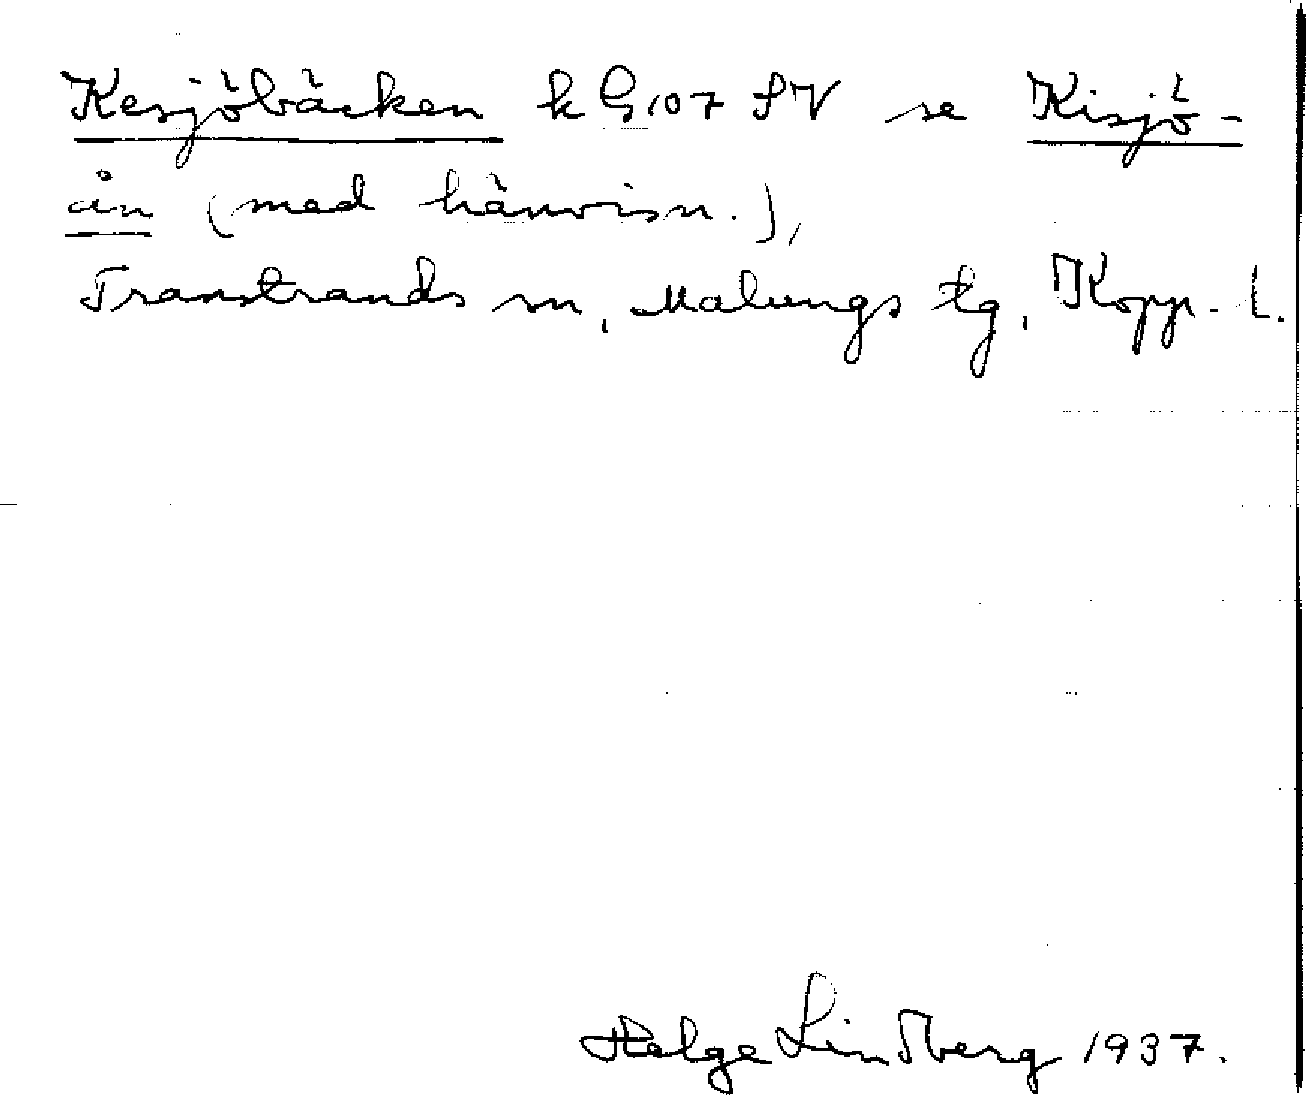 Kesjöbäcken k G 107 SV se Kisjö-
ån (med hänvisn.),
Transtrands sn, Malungs tg, Kopp. l.
Helge Lindberg 1937.